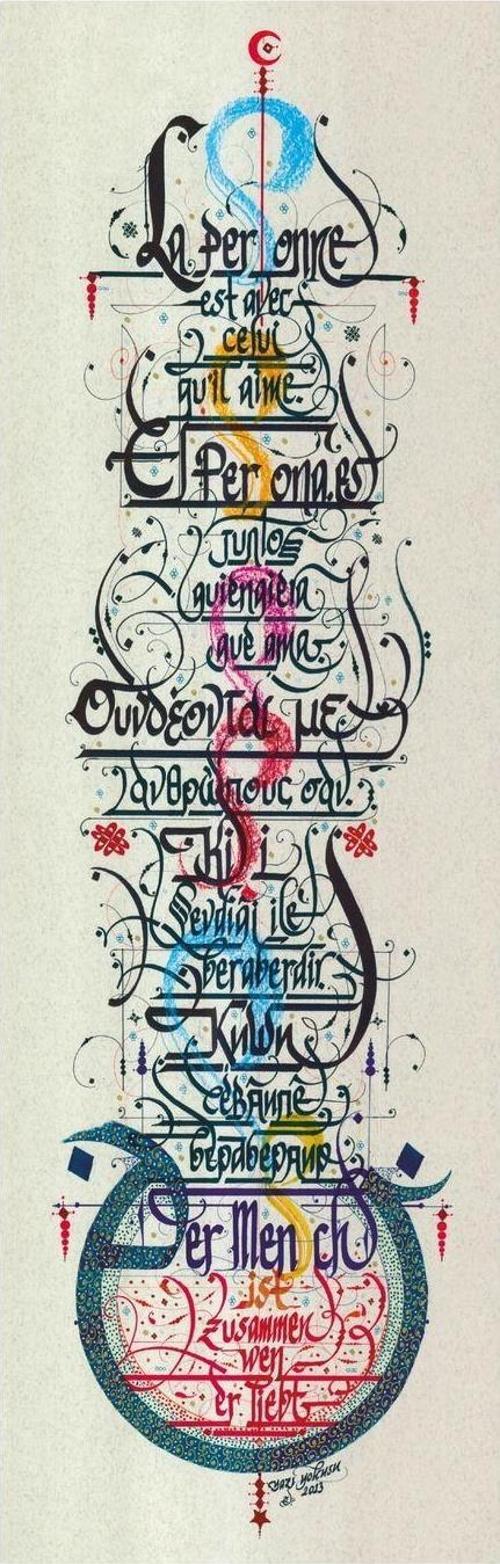 La personne
est avec
celui
qu'il aime.
El Persona es
juntos
quienquiera
que ama.
Συνδέονται με
ανθρώπους σαν.
Kişi
Sevdiği ile
beraberdir.
Киши
севдиги
бераберdir
Der Mensch
ist
zusammen
wen
er liebt.
yazı yolcusu
2013